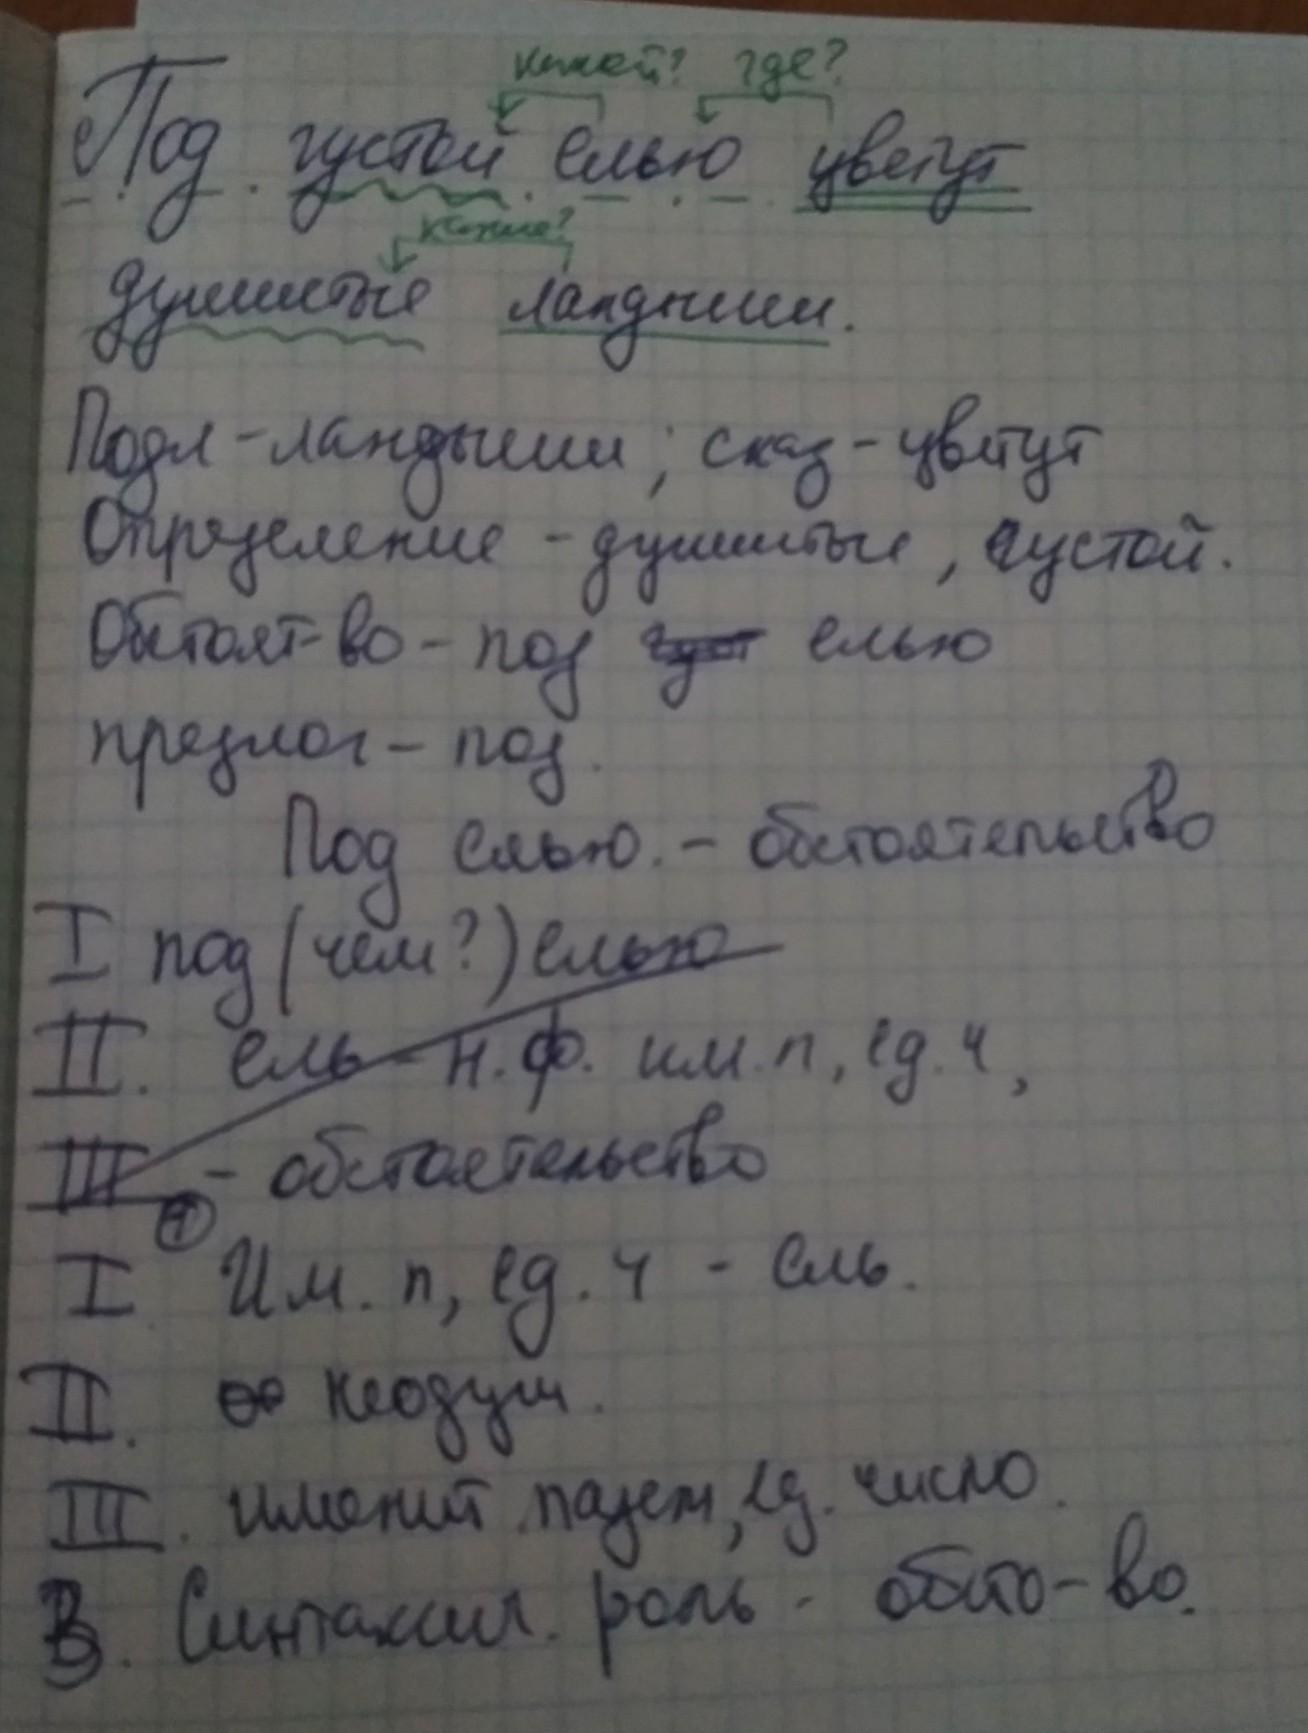 какой? где?
Под густой елью цветут
какие?
душистые ландыши.
Подл - ландыши; сказ - цветут
Определение - душистые, густой.
Обстоят-во - под густ елью
предлог - под.
Под елью. - обстоятельство
I под (чем?) елью
II. ель - н.ф. им.п, ед.ч,
III - обстоятельство
1
I. Им.п, ед.ч - ель.
II. неодуш.
III. именит падеж, ед. число.
В. Синтаксич. роль - обсто-во.